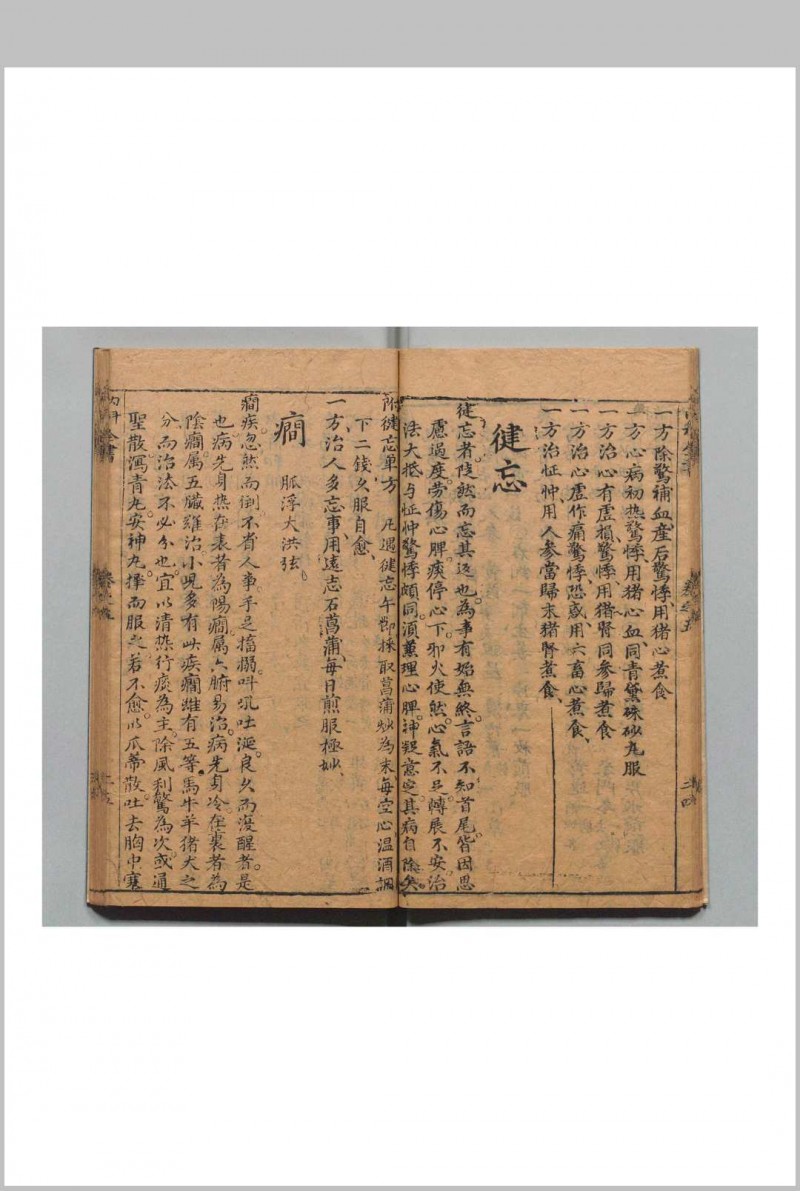 一方除驚補血產后驚悸用猪心煮食
一方心病初热驚悸用猪心血同青黛硃砂丸服
一方治心有虛損驚悸用猪腎同参歸煮食
一方治心虛作痛驚悸恐惑用六畜心煮食
一方治怔忡用人参當歸末猪腎煮食
徤忘
徤忘者陡然而忘其迯也為事有始無終言語不知首尾皆因思
慮過度勞傷心脾痰停心下邪火使然心氣不足轉展不安治
法大抵与怔忡驚悸頗同須薰理心脾神凝意定其病自除矣
附徤忘单方 凡遇徤忘午節採取菖蒲炒為末每空心温酒調
下二錢久服自愈
一方治人多忘事用遠志石菖蒲每日煎服極妙
癇 脈浮大洪弦
癇疾忽然而倒不省人事手足搐搦叫吼吐涎良久而復醒者是
也病先身热在表者為陽癇属六腑易治病先身冷在裏者為
陰癇属五臟难治小児多有此疾癇虽有五等馬牛羊猪犬之
分而治法不必分也宜以清热行痰為主除風利驚為次或通
聖散瀉青丸安神丸擇而服之若不愈以瓜蒂散吐去胸中寒
内科全書